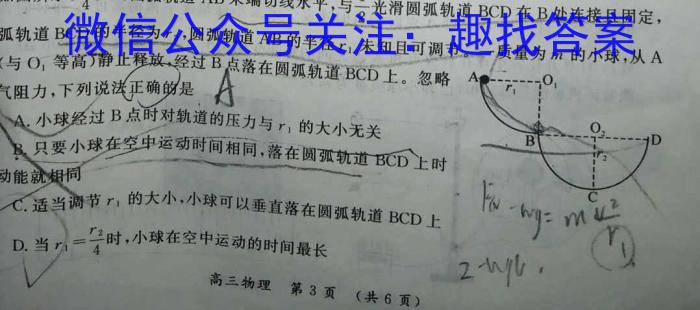 4 AB末端切线水平,与 光滑圆弧轨道BCD在B处连接且固定,
弧轨道BCD的半径为r₂,圆弧轨道AB的半径r₁未知且可调节。一质量为m的小球,从A
微信公众号关注:趣找答案
(与O₁等高)静止释放,经过B点落在圆弧轨道BCD上。忽略
气阻力,下列说法正确的是
A
A.小球经过B点时对轨道的压力与r₁的大小无关
B.只要小球在空中运动时间相同,落在圆弧轨道BCD上时
动能就相同
C.适当调节r₁的大小,小球可以垂直落在圆弧轨道BCD上
D.当r₁=r₂/4时,小球在空中运动的时间最长
高三物理 第3页 (共6页)
A r₁ O₁
B O₂ D
r₂
C
-mg=m v²/r₁